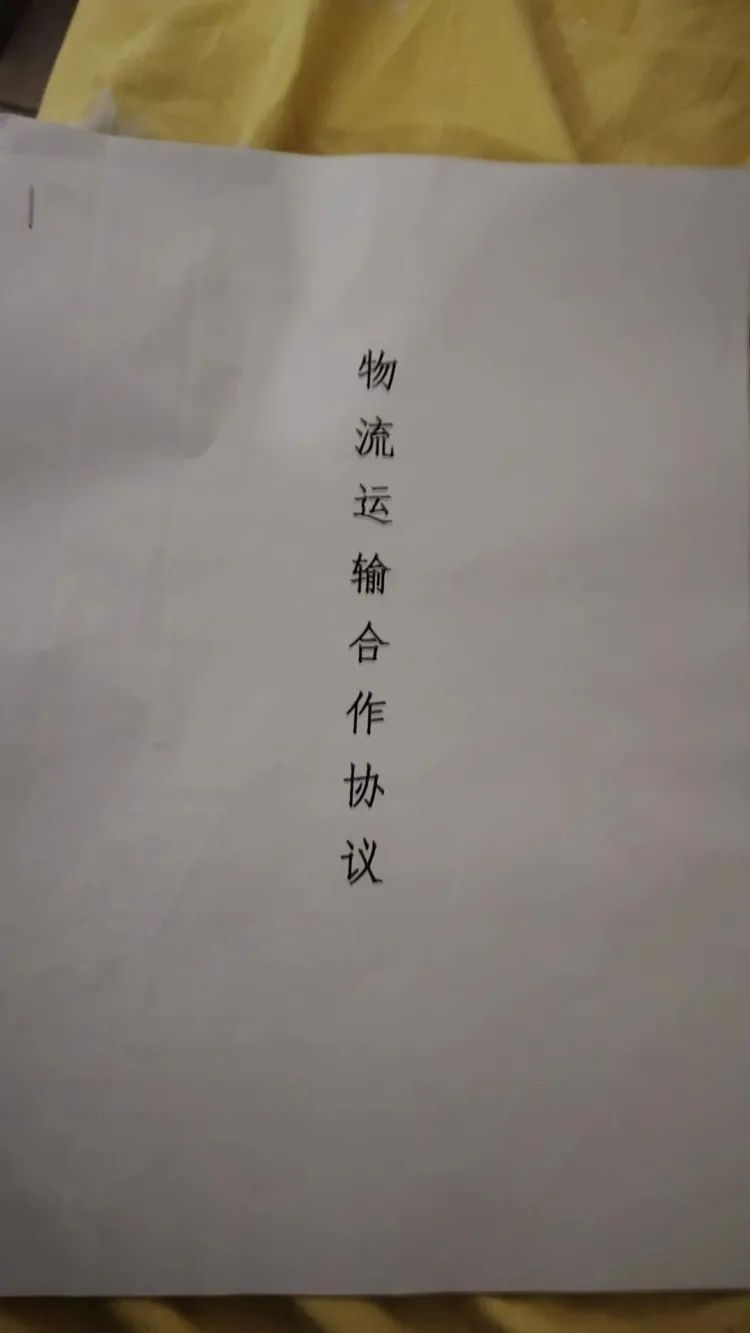 物流运输合作协议